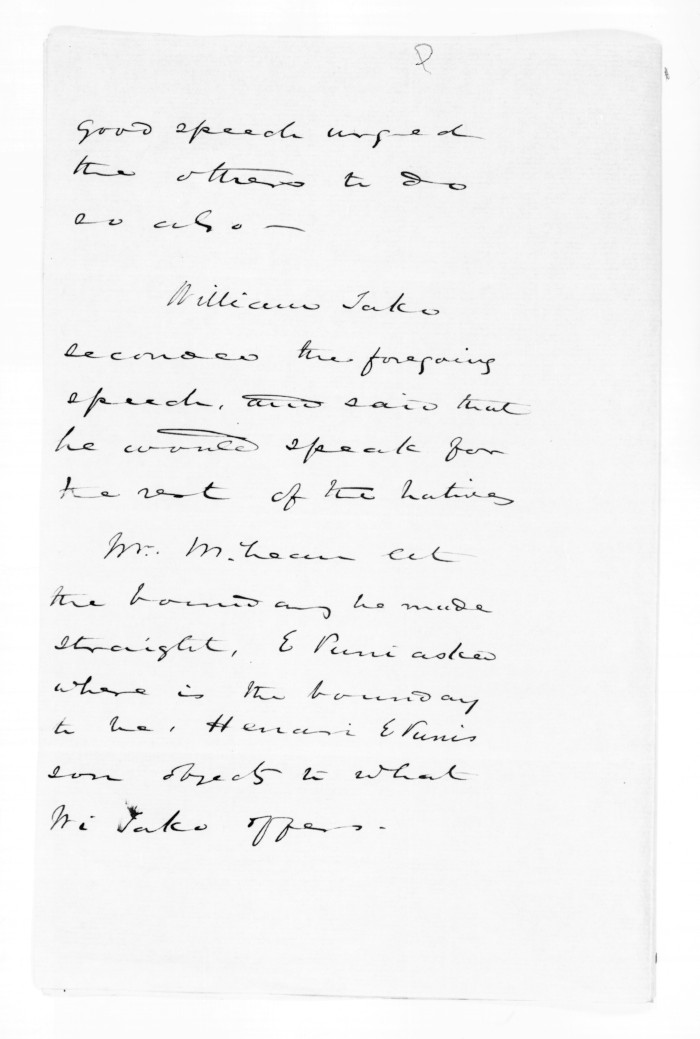 good speech urged
the others to do
so also —
William Tako
seconded the foregoing
speech, and said that
he would speak for
the rest of the Natives
Mr. McLean let
the boundary be made
straight, E Puni asked
where is the bounday
to be, Henari E Punis
son objects to what
Wi Tako offers.